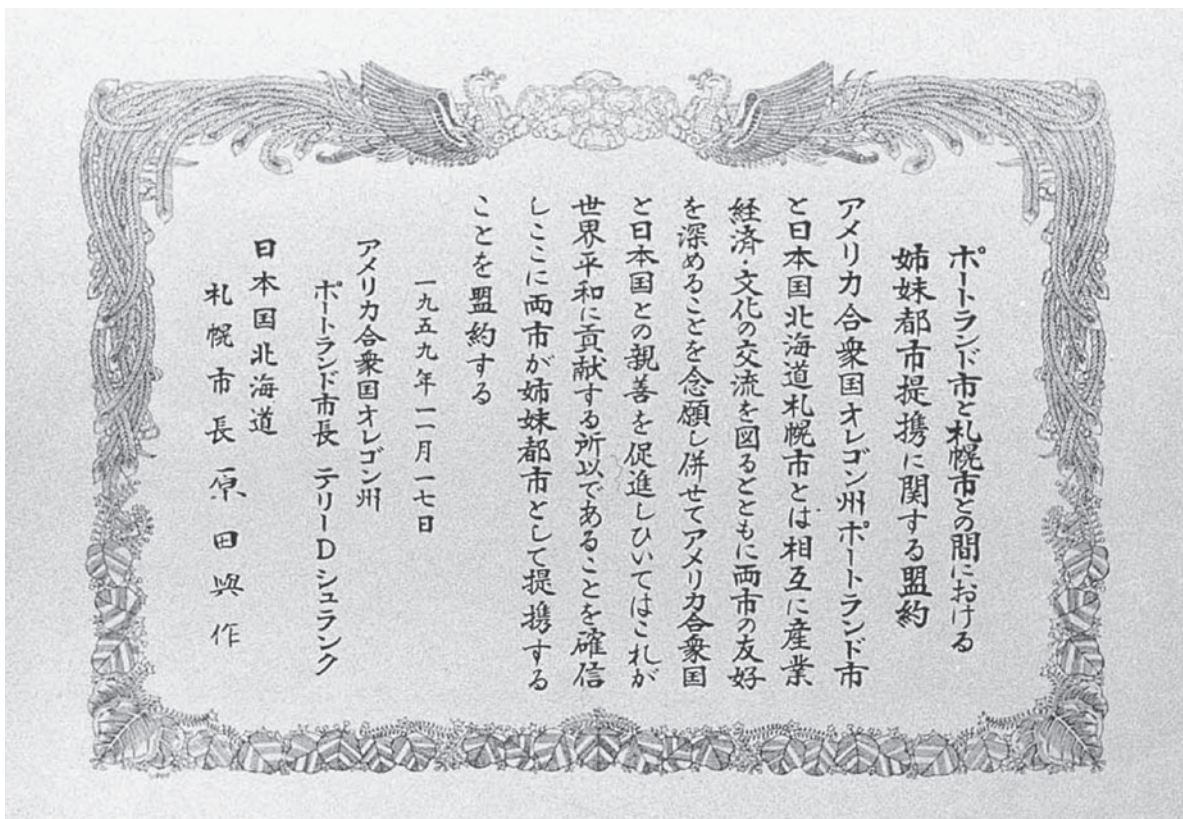 ポートランド市と札幌市との間における
姉妹都市提携に関する盟約
アメリカ合衆国オレゴン州ポートランド市
と日本国北海道札幌市とは相互に産業
経済・文化の交流を図るとともに両市の友好
を深めることを念願し併せてアメリカ合衆国
と日本国との親善を促進しひいてはこれが
世界平和に貢献する所以であることを確信
しここに両市が姉妹都市として提携する
ことを盟約する
一九五九年一一月一七日
アメリカ合衆国オレゴン州
ポートランド市長 テリーDシュランク
日本国北海道
札幌市長 原田與作